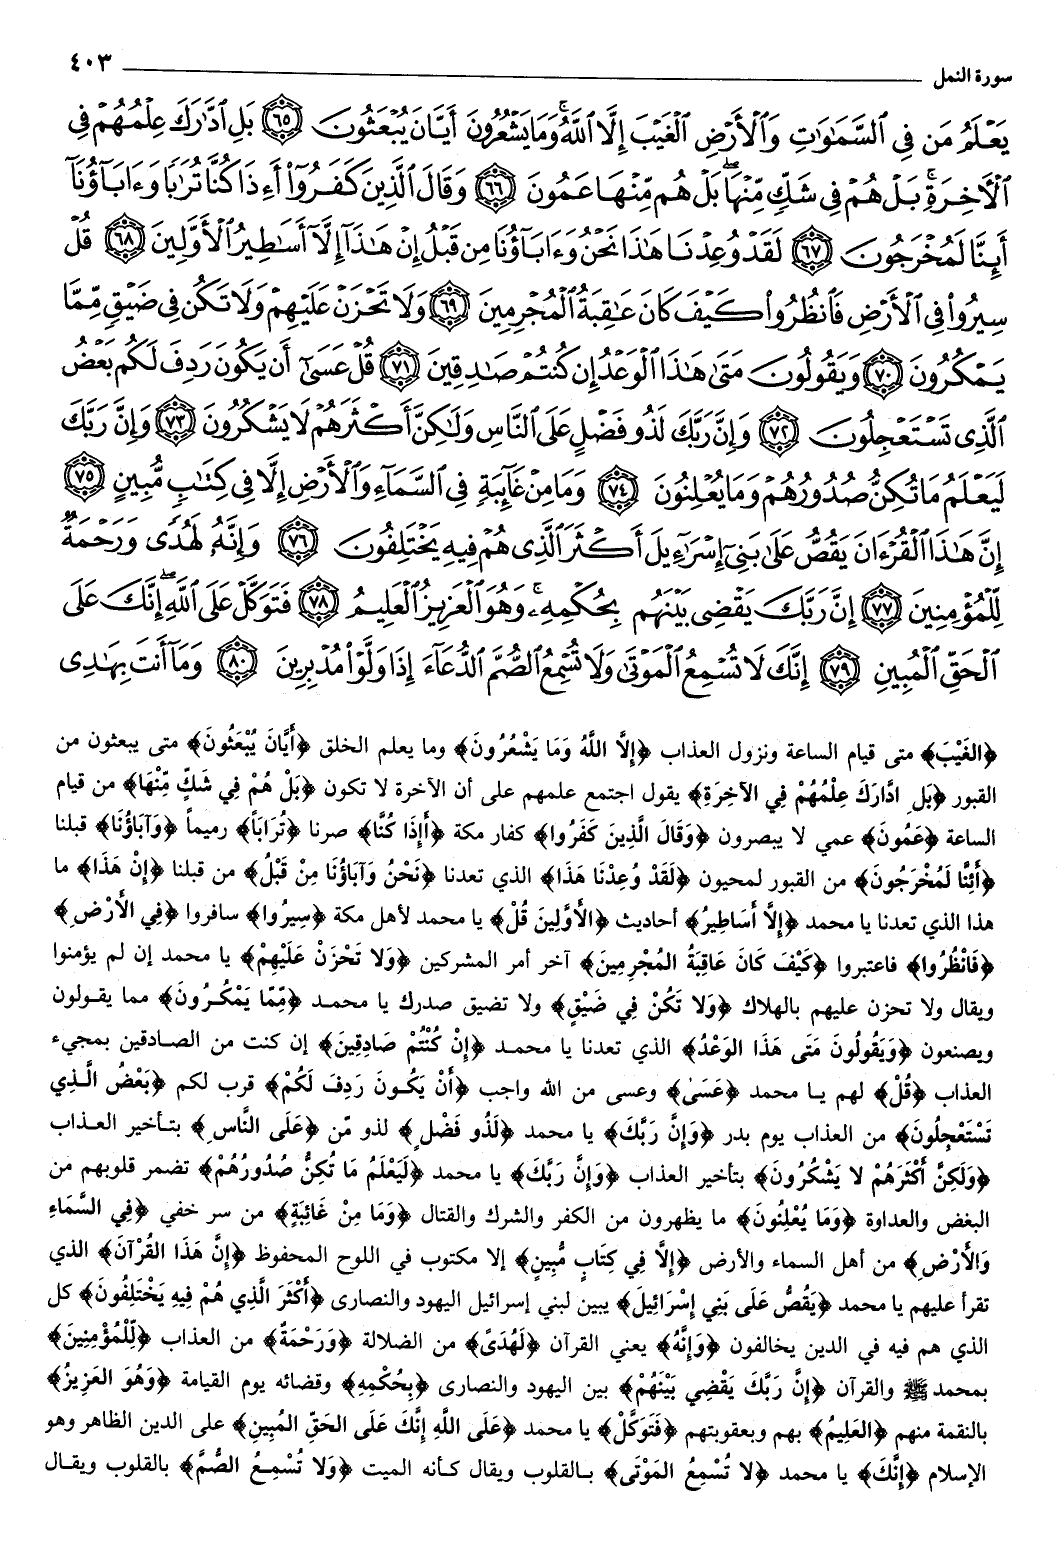 سورة النمل ٤٠٣
يَعْلَمُ مَن فِى ٱلسَّمَٰوَٰتِ وَٱلْأَرْضِ ٱلْغَيْبَ إِلَّا ٱللَّهُ ۚ وَمَا يَشْعُرُونَ أَيَّانَ يُبْعَثُونَ ٦٥ بَلِ ٱدَّٰرَكَ عِلْمُهُمْ فِى
ٱلْءَاخِرَةِ ۚ بَلْ هُمْ فِى شَكٍّ مِّنْهَا ۖ بَلْ هُم مِّنْهَا عَمُونَ ٦٦ وَقَالَ ٱلَّذِينَ كَفَرُوٓا۟ أَءِذَا كُنَّا تُرَٰبًا وَءَابَآؤُنَآ
أَئِنَّا لَمُخْرَجُونَ ٦٧ لَقَدْ وُعِدْنَا هَٰذَا نَحْنُ وَءَابَآؤُنَا مِن قَبْلُ إِنْ هَٰذَآ إِلَّآ أَسَٰطِيرُ ٱلْأَوَّلِينَ ٦٨ قُلْ
سِيرُوا۟ فِى ٱلْأَرْضِ فَٱنظُرُوا۟ كَيْفَ كَانَ عَٰقِبَةُ ٱلْمُجْرِمِينَ ٦٩ وَلَا تَحْزَنْ عَلَيْهِمْ وَلَا تَكُن فِى ضَيْقٍ مِّمَّا
يَمْكُرُونَ ٧٠ وَيَقُولُونَ مَتَىٰ هَٰذَا ٱلْوَعْدُ إِن كُنتُمْ صَٰدِقِينَ ٧١ قُلْ عَسَىٰٓ أَن يَكُونَ رَدِفَ لَكُم بَعْضُ
ٱلَّذِى تَسْتَعْجِلُونَ ٧٢ وَإِنَّ رَبَّكَ لَذُو فَضْلٍ عَلَى ٱلنَّاسِ وَلَٰكِنَّ أَكْثَرَهُمْ لَا يَشْكُرُونَ ٧٣ وَإِنَّ رَبَّكَ
لَيَعْلَمُ مَا تُكِنُّ صُدُورُهُمْ وَمَا يُعْلِنُونَ ٧٤ وَمَا مِنْ غَآئِبَةٍ فِى ٱلسَّمَآءِ وَٱلْأَرْضِ إِلَّا فِى كِتَٰبٍ مُّبِينٍ ٧٥
إِنَّ هَٰذَا ٱلْقُرْءَانَ يَقُصُّ عَلَىٰ بَنِىٓ إِسْرَٰٓءِيلَ أَكْثَرَ ٱلَّذِى هُمْ فِيهِ يَخْتَلِفُونَ ٧٦ وَإِنَّهُۥ لَهُدًى وَرَحْمَةٌ
لِّلْمُؤْمِنِينَ ٧٧ إِنَّ رَبَّكَ يَقْضِى بَيْنَهُم بِحُكْمِهِۦ ۚ وَهُوَ ٱلْعَزِيزُ ٱلْعَلِيمُ ٧٨ فَتَوَكَّلْ عَلَى ٱللَّهِ ۖ إِنَّكَ عَلَى
ٱلْحَقِّ ٱلْمُبِينِ ٧٩ إِنَّكَ لَا تُسْمِعُ ٱلْمَوْتَىٰ وَلَا تُسْمِعُ ٱلصُّمَّ ٱلدُّعَآءَ إِذَا وَلَّوْا۟ مُدْبِرِينَ ٨٠ وَمَآ أَنتَ بِهَٰدِى
﴿الغَيْبَ﴾ متى قيام الساعة ونزول العذاب ﴿إِلَّا اللَّهُ وَمَا يَشْعُرُونَ﴾ وما يعلم الخلق ﴿أَيَّانَ يُبْعَثُونَ﴾ متى يبعثون من
القبور ﴿بَلِ ادَّارَكَ عِلْمُهُمْ فِي الآخِرَةِ﴾ يقول اجتمع علمهم على أن الآخرة لا تكون ﴿بَلْ هُمْ فِي شَكٍّ مِّنْهَا﴾ من قيام
الساعة ﴿عَمُونَ﴾ عمي لا يبصرون ﴿وَقَالَ الَّذِينَ كَفَرُوا﴾ كفار مكة ﴿أَإِذَا كُنَّا﴾ صرنا ﴿تُرَاباً﴾ رميماً ﴿وَآبَاؤُنَا﴾ قبلنا
﴿أَئِنَّا لَمُخْرَجُونَ﴾ من القبور لمحيون ﴿لَقَدْ وُعِدْنَا هَذَا﴾ الذي تعدنا ﴿نَحْنُ وَآبَاؤُنَا مِنْ قَبْلُ﴾ من قبلنا ﴿إِنْ هَذَا﴾ ما
هذا الذي تعدنا يا محمد ﴿إِلَّا أَسَاطِيرُ﴾ أحاديث ﴿الأَوَّلِينَ قُلْ﴾ يا محمد لأهل مكة ﴿سِيرُوا﴾ سافروا ﴿فِي الأَرْضِ﴾
﴿فَانْظُرُوا﴾ فاعتبروا ﴿كَيْفَ كَانَ عَاقِبَةُ المُجْرِمِينَ﴾ آخر أمر المشركين ﴿وَلا تَحْزَنْ عَلَيْهِمْ﴾ يا محمد إن لم يؤمنوا
ويقال ولا تحزن عليهم بالهلاك ﴿وَلا تَكُنْ فِي ضَيْقٍ﴾ ولا تضيق صدرك يا محمد ﴿مِّمَّا يَمْكُرُونَ﴾ مما يقولون
ويصنعون ﴿وَيَقُولُونَ مَتَى هَذَا الوَعْدُ﴾ الذي تعدنا يا محمد ﴿إِنْ كُنْتُمْ صَادِقِينَ﴾ إن كنت من الصادقين بمجيء
العذاب ﴿قُلْ﴾ لهم يا محمد ﴿عَسَىٰ﴾ وعسى من الله واجب ﴿أَنْ يَكُونَ رَدِفَ لَكُمْ﴾ قرب لكم ﴿بَعْضُ الَّذِي
تَسْتَعْجِلُونَ﴾ من العذاب يوم بدر ﴿وَإِنَّ رَبَّكَ﴾ يا محمد ﴿لَذُو فَضْلٍ﴾ لذو منّ ﴿عَلَى النَّاسِ﴾ بتأخير العذاب
﴿وَلَكِنَّ أَكْثَرَهُمْ لا يَشْكُرُونَ﴾ بتأخير العذاب ﴿وَإِنَّ رَبَّكَ﴾ يا محمد ﴿لَيَعْلَمُ مَا تُكِنُّ صُدُورُهُمْ﴾ تضمر قلوبهم من
البغض والعداوة ﴿وَمَا يُعْلِنُونَ﴾ ما يظهرون من الكفر والشرك والقتال ﴿وَمَا مِنْ غَائِبَةٍ﴾ من سر خفي ﴿فِي السَّمَاءِ
وَالأَرْضِ﴾ من أهل السماء والأرض ﴿إِلَّا فِي كِتَابٍ مُّبِينٍ﴾ إلا مكتوب في اللوح المحفوظ ﴿إِنَّ هَذَا القُرْآنَ﴾ الذي
تقرأ عليهم يا محمد ﴿يَقُصُّ عَلَى بَنِي إِسْرَائِيلَ﴾ يبين لبني إسرائيل اليهود والنصارى ﴿أَكْثَرَ الَّذِي هُمْ فِيهِ يَخْتَلِفُونَ﴾ كل
الذي هم فيه في الدين يخالفون ﴿وَإِنَّهُ﴾ يعني القرآن ﴿لَهُدَىً﴾ من الضلالة ﴿وَرَحْمَةٌ﴾ من العذاب ﴿لِّلْمُؤْمِنِينَ﴾
بمحمد ﷺ والقرآن ﴿إِنَّ رَبَّكَ يَقْضِي بَيْنَهُمْ﴾ بين اليهود والنصارى ﴿بِحُكْمِهِ﴾ وقضائه يوم القيامة ﴿وَهُوَ العَزِيزُ﴾
بالنقمة منهم ﴿العَلِيمُ﴾ بهم وبعقوبتهم ﴿فَتَوَكَّلْ﴾ يا محمد ﴿عَلَى اللَّهِ إِنَّكَ عَلَى الحَقِّ المُبِينِ﴾ على الدين الظاهر وهو
الإسلام ﴿إِنَّكَ﴾ يا محمد ﴿لا تُسْمِعُ المَوْتَى﴾ بالقلوب ويقال كأنه الميت ﴿وَلا تُسْمِعُ الصُّمَّ﴾ بالقلوب ويقال